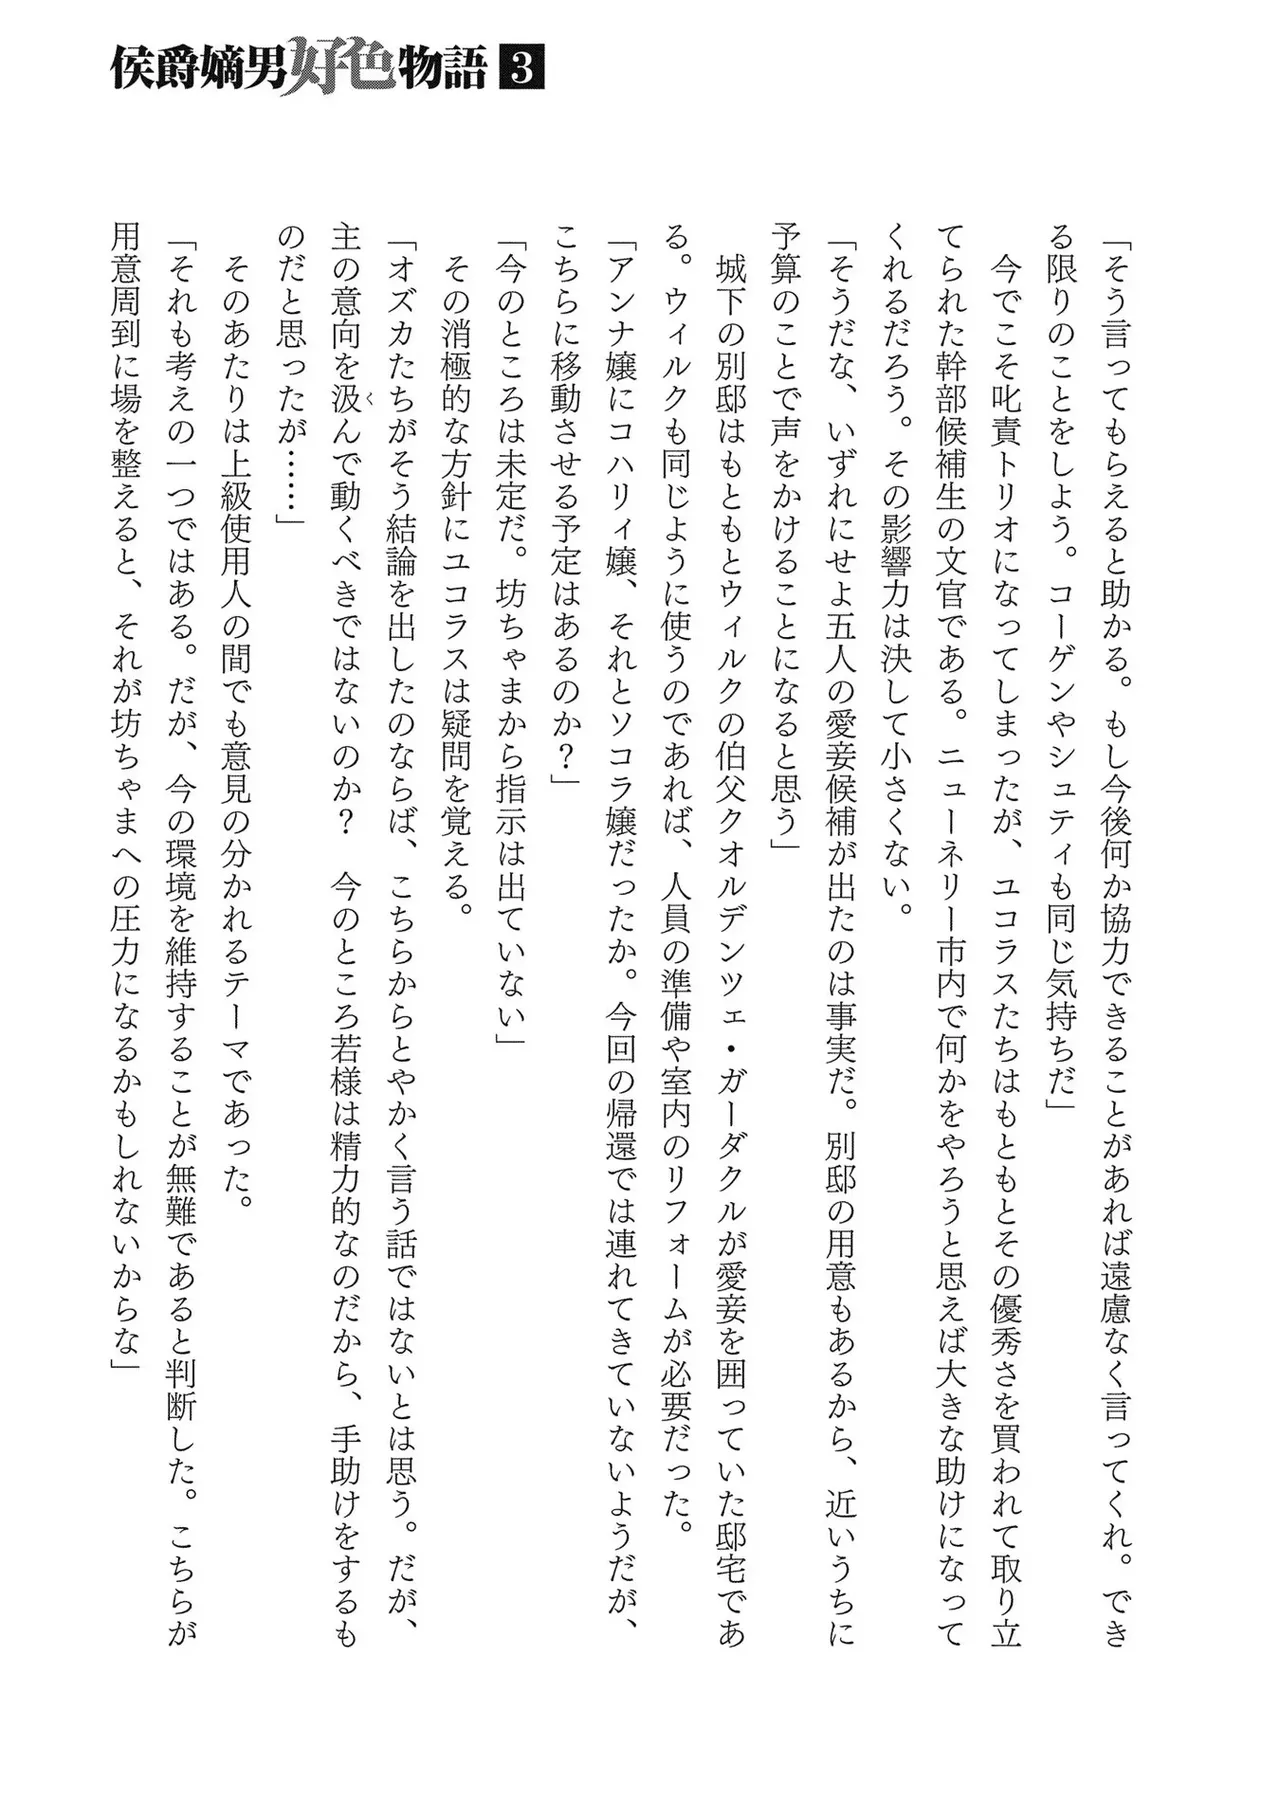 侯爵嫡男好色物語 3
「そう言ってもらえると助かる。もし今後何か協力できることがあれば遠慮なく言ってくれ。でき
る限りのことをしよう。コーゲンやシュティも同じ気持ちだ」
　今でこそ叱責トリオになってしまったが、ユコラスたちはもともとその優秀さを買われて取り立
てられた幹部候補生の文官である。ニューネリー市内で何かをやろうと思えば大きな助けになって
くれるだろう。その影響力は決して小さくない。
「そうだな、いずれにせよ五人の愛妾候補が出たのは事実だ。別邸の用意もあるから、近いうちに
予算のことで声をかけることになると思う」
　城下の別邸はもともとウィルクの伯父クオルデンツェ・ガーダクルが愛妾を囲っていた邸宅であ
る。ウィルクも同じように使うのであれば、人員の準備や室内のリフォームが必要だった。
「アンナ嬢にコハリィ嬢、それとソコラ嬢だったか。今回の帰還では連れてきていないようだが、
こちらに移動させる予定はあるのか？」
「今のところは未定だ。坊ちゃまから指示は出ていない」
　その消極的な方針にユコラスは疑問を覚える。
「オズカたちがそう結論を出したのならば、こちらからとやかく言う話ではないとは思う。だが、
主の意向を汲んで動くべきではないのか？　今のところ若様は精力的なのだから、手助けをするも
く
のだと思ったが……」
　そのあたりは上級使用人の間でも意見の分かれるテーマであった。
「それも考えの一つではある。だが、今の環境を維持することが無難であると判断した。こちらが
用意周到に場を整えると、それが坊ちゃまへの圧力になるかもしれないからな」